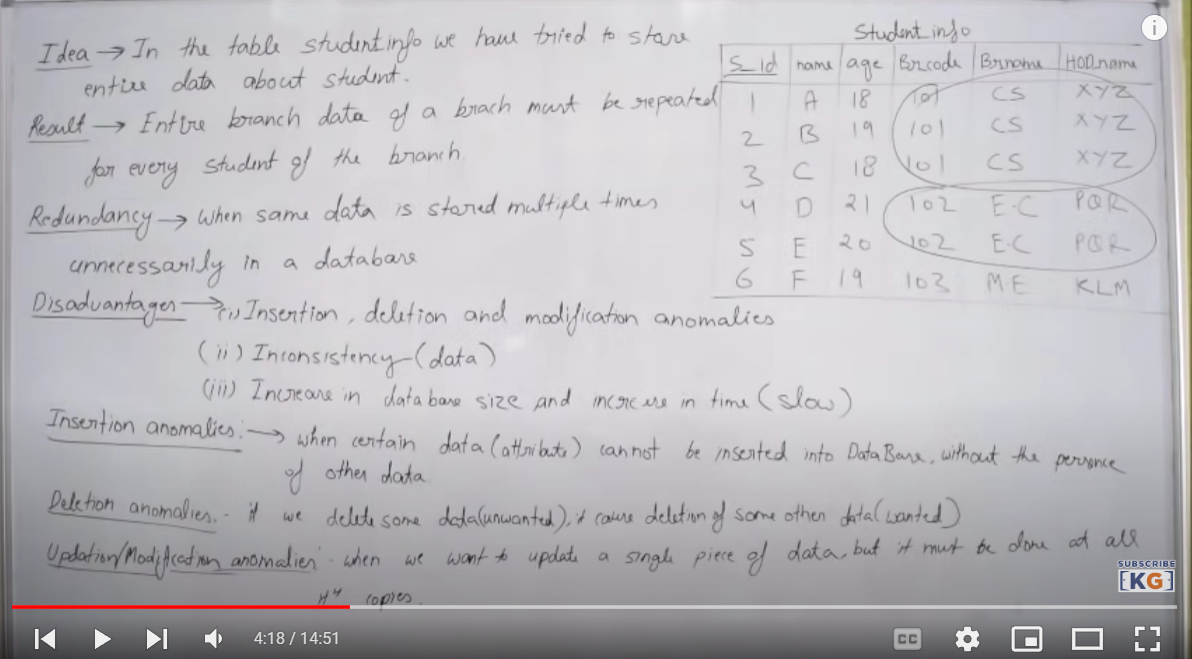 Idea → In the table studentinfo we have tried to store
entire data about student.
Result → Entire branch data of a brach must be repeated
for every student of the branch
Redundancy → when same data is stored multiple times
unnecessarily in a database
Disadvantages → (i) Insertion, deletion and modification anomalies
(ii) Inconsistency (data)
(iii) Increase in database size and increase in time (slow)
Insertion anomalies: → when certain data (attribute) cannot be inserted into DataBase, without the
of other data.
Deletion anomalies. - if we delete some data (unwanted), it cause deletion of some other data (wanted)
Updation/Modification anomalies: when we want to update a single piece of data, but it must be done at all
copies.
Student info
S_Id name age Brcode Brname HOD_name
1 A 18 101 CS XYZ
2 B 19 101 CS XYZ
3 C 18 101 CS XYZ
4 D 21 102 E.C PQR
5 E 20 102 E.C PQR
6 F 19 103 ME KLM
SUBSCRIBE
[KG]
4:18 / 14:51
CC